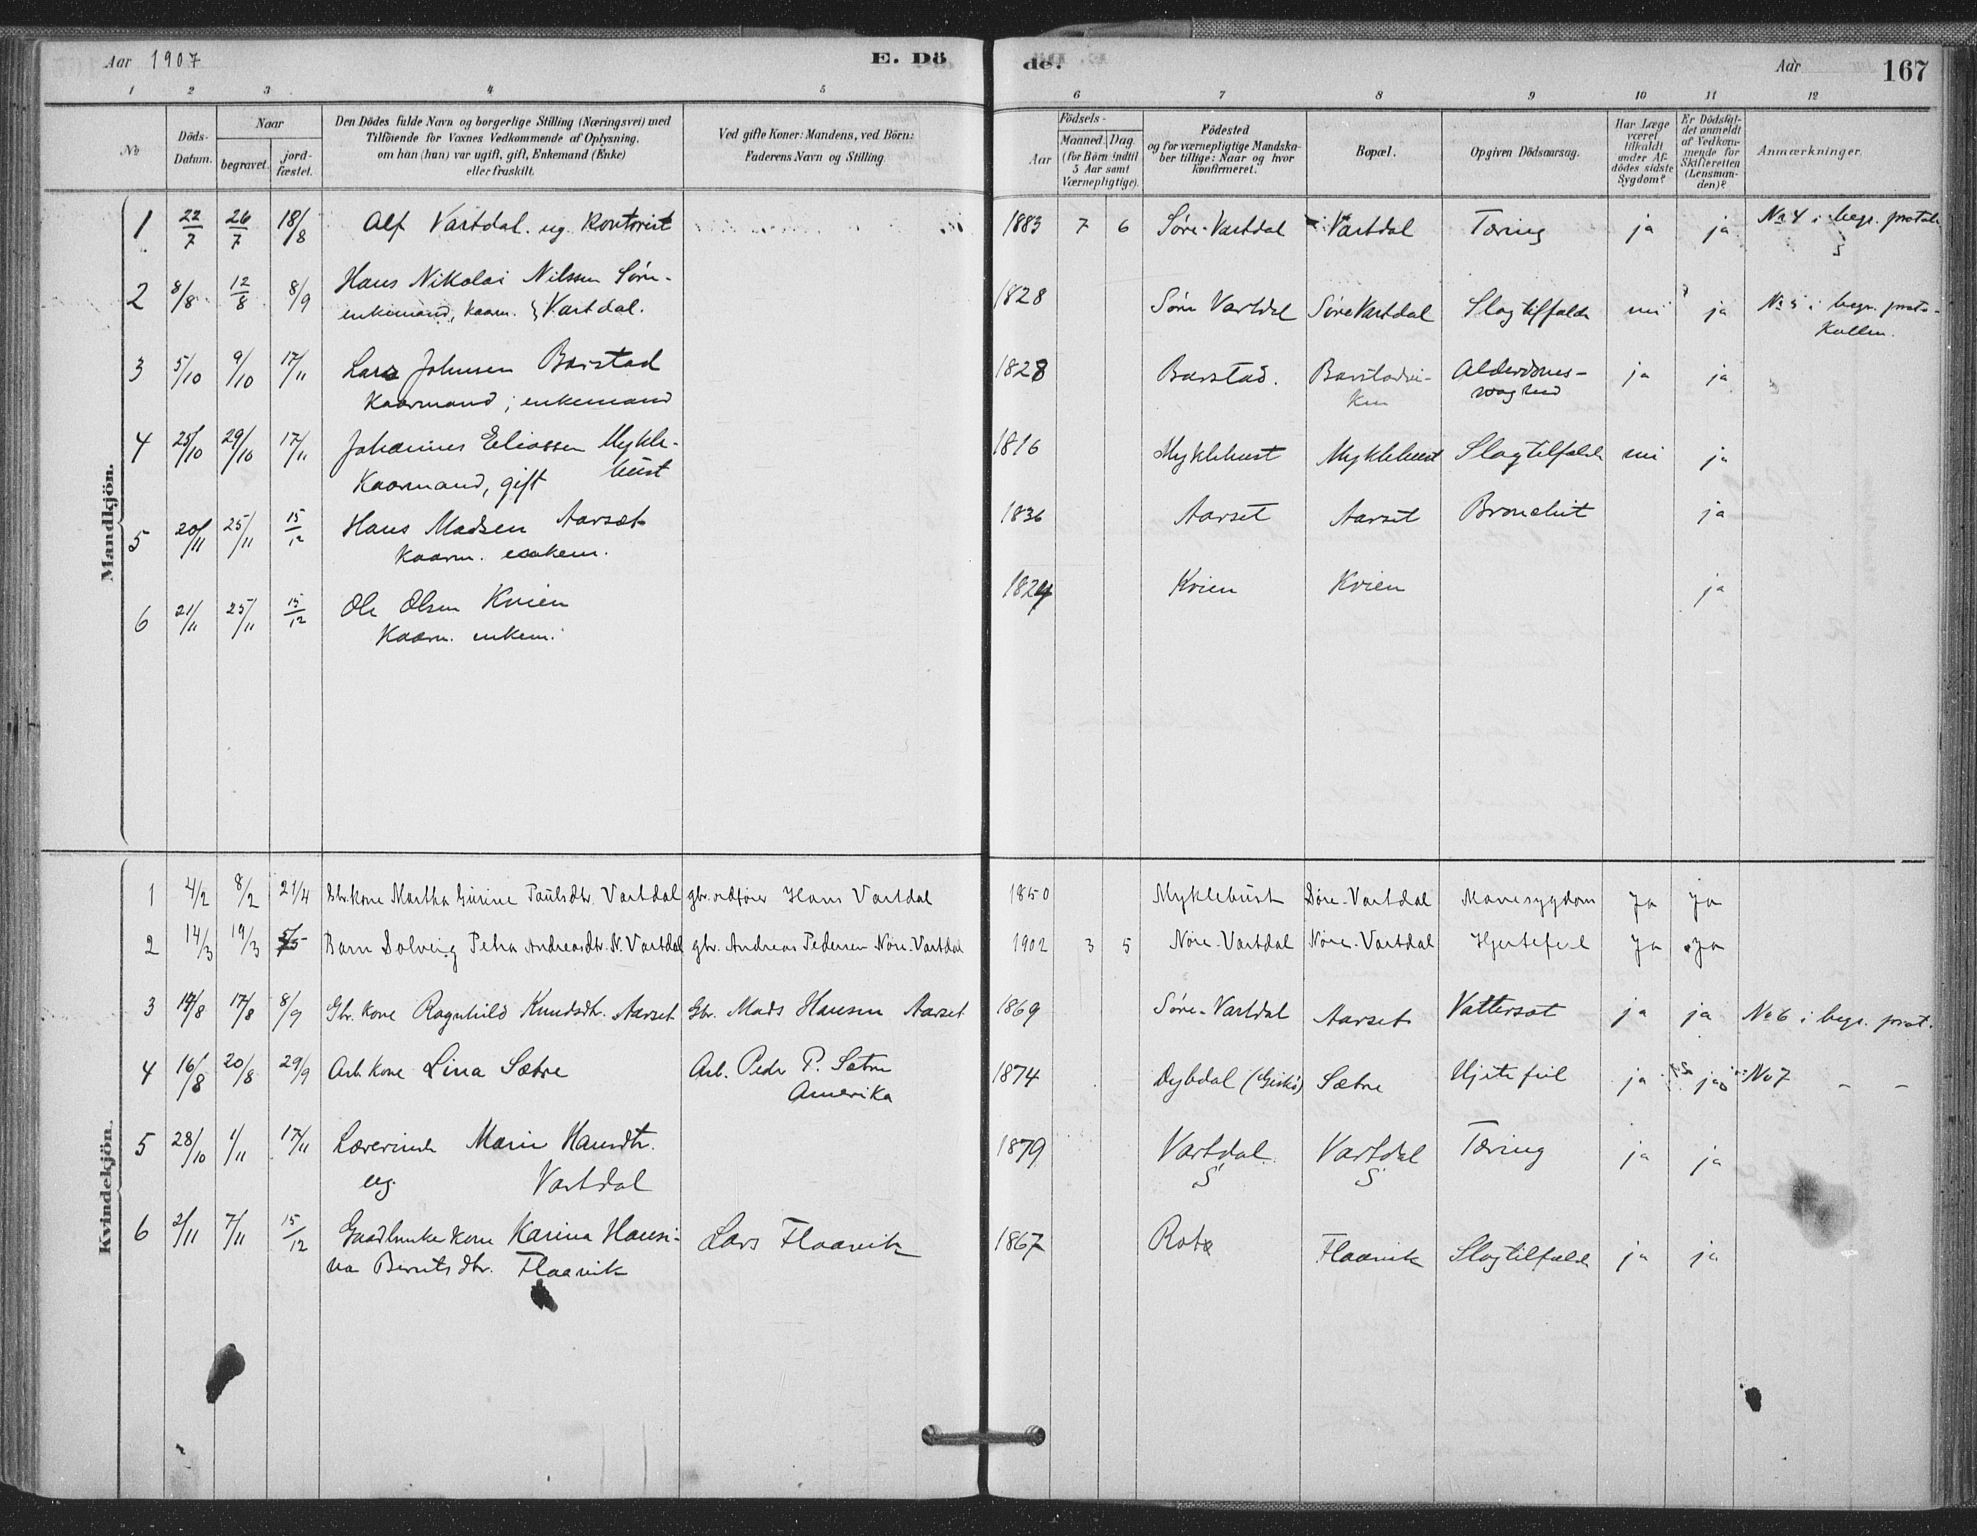 Aar 1907
E. Dö
de.
Aar
167
1 2 3 4 5 6 7 8 9 10 11 12
No
Döds-
Datum.
Naar
begravet.
jord-
fæstet.
Den Dödes fulde Navn og borgerlige Stilling (Næringsvei) med
Tilföiende for Voxnes Vedkommende af Oplysning,
om hän (han) var ugift, gift, Enkemand (Enke)
eller fraskilt.
Ved gifte Koner: Mandens, ved Börn:
Faderens Navn og Stilling.
Födsels-
Aar
Maaned. Dag.
(for Börn indtil
5 Aar samt
Værnepligtige).
Födested
og for værnepligtige Mandska-
ber tillige: Naar og hvor
konfirmeret.
Bopæl.
Opgiven Dödsaarsag.
Har Læge
været
tilkaldt
under Af-
dödes sidste
Sygdom?
Er Dödsfal-
det anmeldt
af Vedkom-
mende for
Skifteretten
(Lensman-
den)?
Anmærkninger.
Mandkjön.
1 22/7 26/7 18/8 Alf Vartdal. ug. Kontorist 1883 7 6 Søre-Vartdal Vartdal Tæring ja ja No 4 i begr. protok.
S
2 8/8 12/8 8/9 Hans Nikolai Nilssen Søre-
enkemand, kaarm. Vartdal. 1828 Søre Vartdal Søre Vartdal Slagtilfælde nei ja No 5 i begr. proto-
kollen.
3 5/10 9/10 17/11 Lars Johnsen Barstad
Kaarmand; enkemand 1828 Barstad. Barstadvi-
ken Alderdoms-
svaghed ja ja
4 25/10 29/10 17/11 Johannes Eliassen Mykle-
bust
Kaarmand, gift 1816 Myklebust Myklebust Slagtilfælde nei ja
5 20/11 25/11 15/12 Hans Madsen Aarset
Kaarm. enkem. 1836 Aarset Aarset Bronchit ja
6 21/11 25/11 15/12 Ole Olsen Kvien
Kaarm. enkem. 1824 Kvien Kvien ja
Kvindekjön.
1 4/2 8/2 21/4 Gbr. kone Martha Gurine Paulsdtr. Vartdal gbr. ordfører Hans Vartdal 1850 Myklebust Søre-Vartdal Mavesygdom Ja Ja
2 14/3 19/3 5/5 Barn Solveig Petra Andreasdtr. N. Vartdal gbr. Andreas Pedersen Nøre-Vartdal 1902 3 5 Nøre-Vartdal Nøre-Vartdal Hjertefeil Ja Ja
3 14/8 17/8 8/9 Gbr. kone Ragnhild Knudsdtr. Aarset Gbr. Mads Hansen Aarset 1869 Søre-Vartdal Aarset Vattersot ja ja No 6 i begr. prot.
4 16/8 20/8 29/9 Arb. kone Lina Sætre Arb. Peder P. Sætre
Amerika 1874 Dybdal (Giskø) Sætre Hjertefeil ja ja No 7 – –
5 28/10 1/11 17/11 Lærerinde Marie Hansdtr.
ug. Vartdal 1879 Vartdal
S Vartdal
S Tæring ja ja
6 2/11 7/11 15/12 Gaardbruker kone Karina Hansi-
na Berntsdtr. Flaavik Lars Flaavik 1867 Flaavik Slagtilfælde ja ja